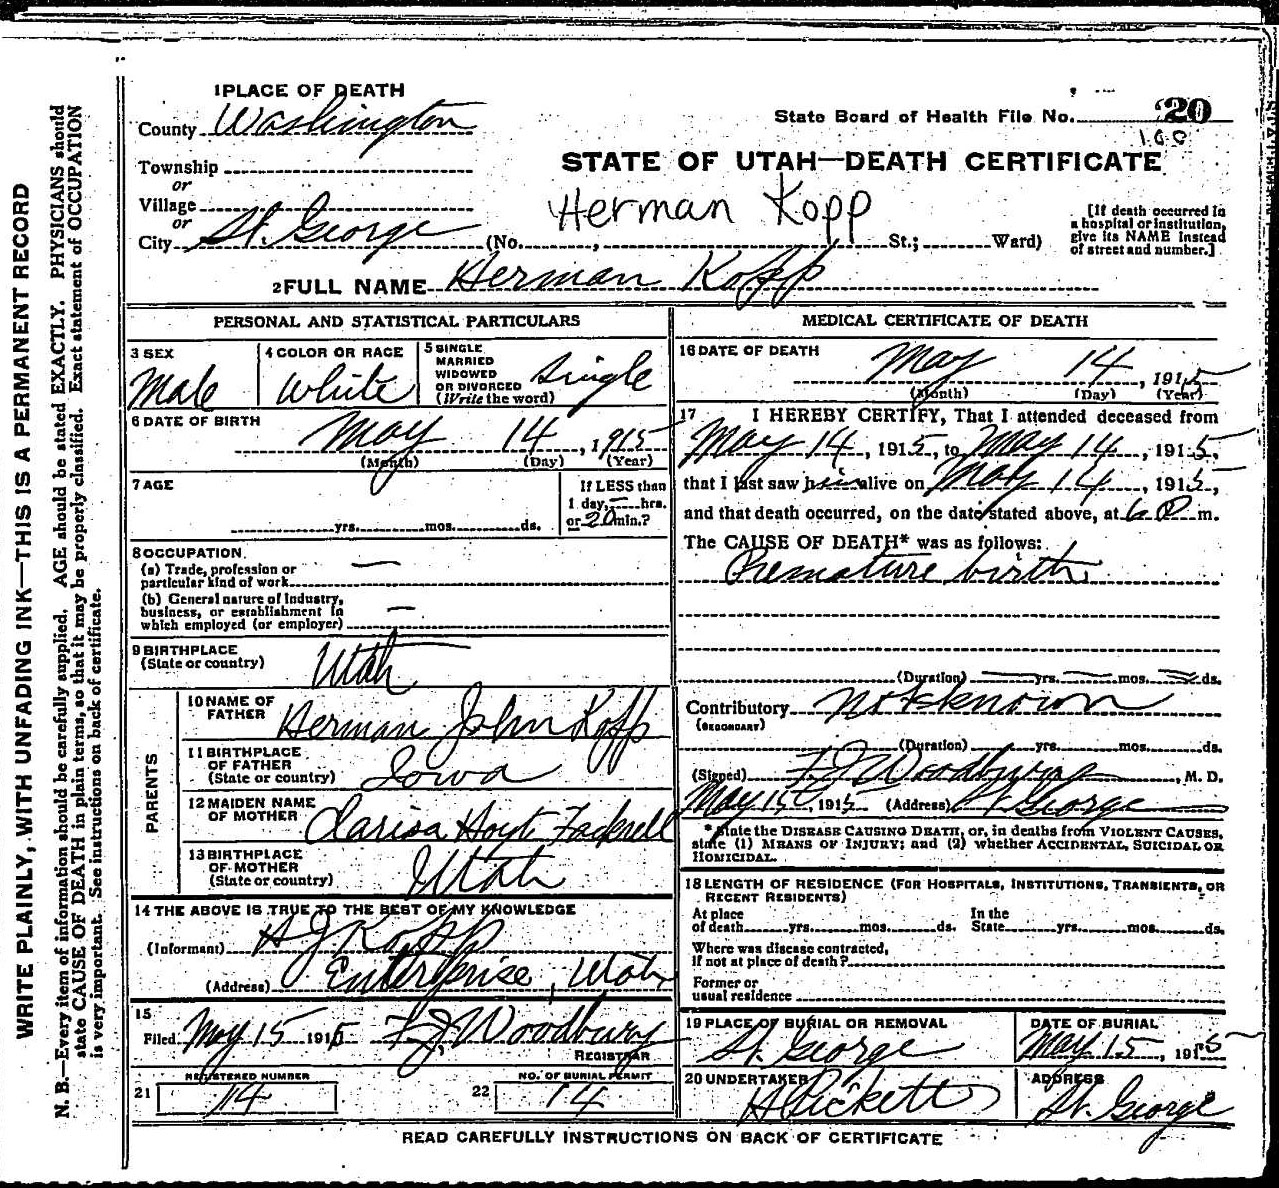 1 PLACE OF DEATH
County Washington
State Board of Health File No. 20
100
Township
or
STATE OF UTAH—DEATH CERTIFICATE
Village
or
Herman Kopp
City St. George (No. , St.; Ward)
[If death occurred in
a hospital or institution,
give its NAME instead
of street and number.]
2 FULL NAME Herman Kopp
PERSONAL AND STATISTICAL PARTICULARS
3 SEX
Male
4 COLOR OR RACE
White
5 SINGLE
MARRIED
WIDOWED
OR DIVORCED
(Write the word)
Single
6 DATE OF BIRTH
May 14, 1915
(Month) (Day) (Year)
7 AGE
yrs. mos. ds.
If LESS than
1 day, — hrs.
or 20 min.?
8 OCCUPATION
(a) Trade, profession or
particular kind of work —
(b) General nature of Industry,
business, or establishment in
which employed (or employer) —
9 BIRTHPLACE
(State or country) Utah
PARENTS
10 NAME OF
FATHER Herman John Kopp
11 BIRTHPLACE
OF FATHER
(State or country) Iowa
12 MAIDEN NAME
OF MOTHER Clarisa Hoyt Fackrell
13 BIRTHPLACE
OF MOTHER
(State or country) Utah
14 THE ABOVE IS TRUE TO THE BEST OF MY KNOWLEDGE
(Informant) H J Kopp
(Address) Enterprise, Utah
15
Filed May 15 1915 F J Woodbury
REGISTRAR
21 REGISTERED NUMBER 14
22 NO. OF BURIAL PERMIT 14
MEDICAL CERTIFICATE OF DEATH
16 DATE OF DEATH
May 14, 1915
(Month) (Day) (Year)
17 I HEREBY CERTIFY, That I attended deceased from
May 14, 1915, to May 14, 1915,
that I last saw him alive on May 14, 1915,
and that death occurred, on the date stated above, at 6 P m.
The CAUSE OF DEATH* was as follows:
Premature birth
(Duration) yrs. mos. ds.
Contributory not known
(SECONDARY)
(Duration) yrs. mos. ds.
(Signed) F J Woodbury, M. D.
May 15, 1915 (Address) St. George
*State the DISEASE CAUSING DEATH, or, in deaths from VIOLENT CAUSES,
state (1) MEANS OF INJURY; and (2) whether ACCIDENTAL, SUICIDAL OR
HOMICIDAL.
18 LENGTH OF RESIDENCE (FOR HOSPITALS, INSTITUTIONS, TRANSIENTS, OR
RECENT RESIDENTS)
At place
of death yrs. mos. ds.
In the
State yrs. mos. ds.
Where was disease contracted,
if not at place of death?
Former or
usual residence
19 PLACE OF BURIAL OR REMOVAL
St. George
DATE OF BURIAL
May 15, 1915
20 UNDERTAKER
H Pickett
ADDRESS
St. George
READ CAREFULLY INSTRUCTIONS ON BACK OF CERTIFICATE
WRITE PLAINLY, WITH UNFADING INK—THIS IS A PERMANENT RECORD
N. B.—Every item of information should be carefully supplied. AGE should be stated EXACTLY. PHYSICIANS should
state CAUSE OF DEATH in plain terms, so that it may be properly classified. Exact statement of OCCUPATION
is very important. See instructions on back of certificate.